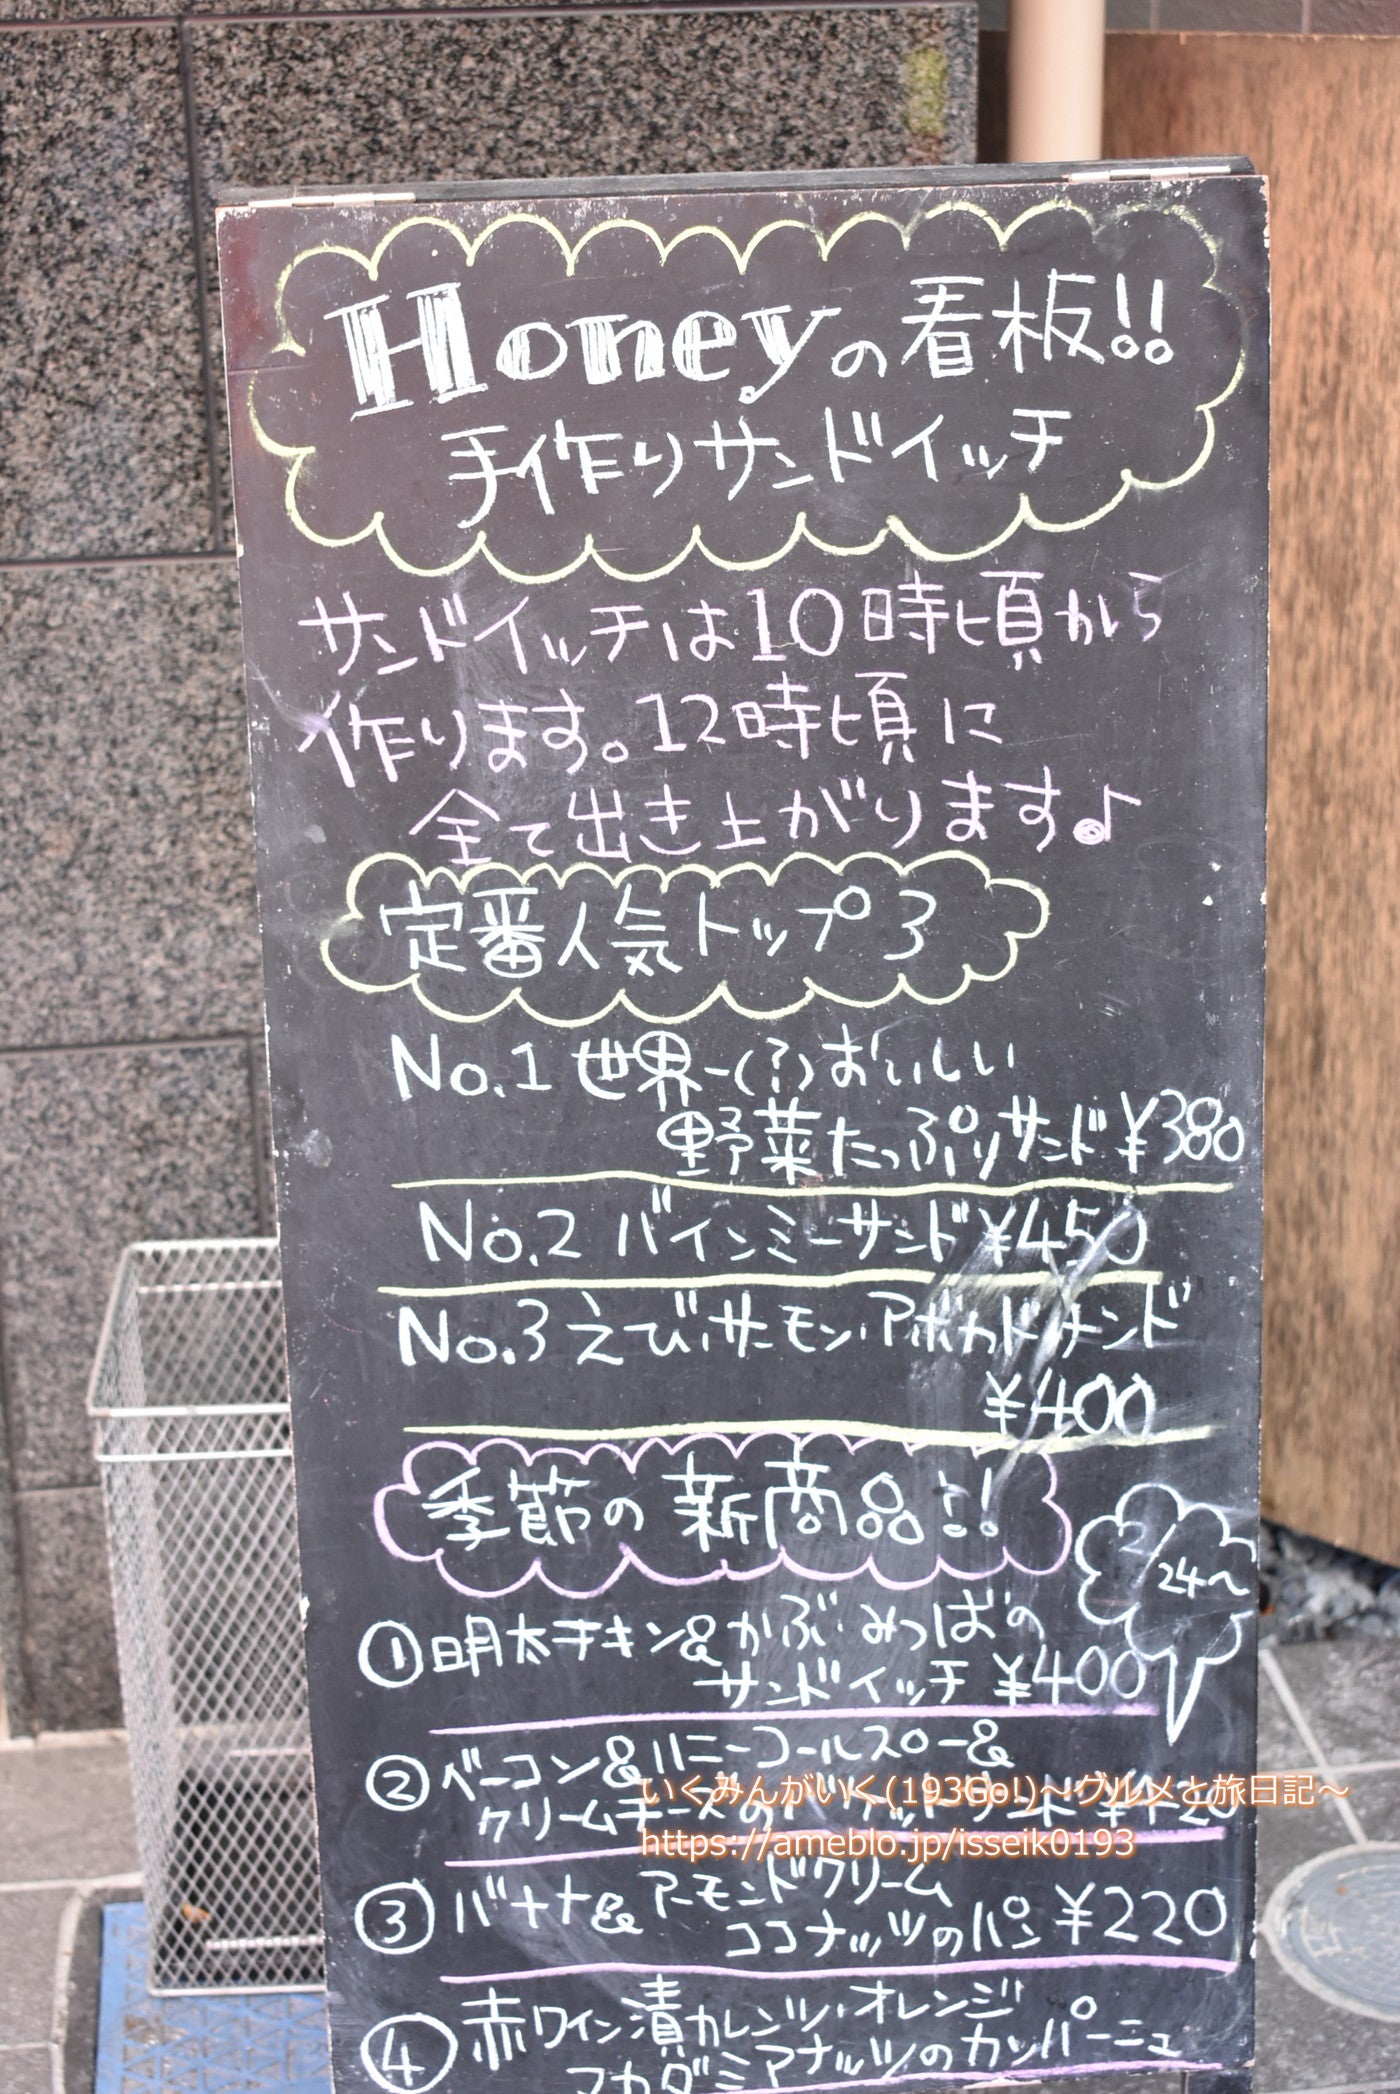 Honeyの看板!!
手作りサンドイッチ
サンドイッチは10時頃から
作ります。12時頃に
全て出き上がります♪
定番人気トップ3
No.1 世界一(?)おいしい
野菜たっぷりサンド ¥380
No.2 バインミーサンド ¥450
No.3 えび・サーモン・アボカドサンド
¥400
季節の新商品!!
2/24～
①明太チキン&かぶ・みつばの
サンドイッチ ¥400
②ベーコン&ハニーコールスロー&
クリームチーズの
いくみんがいく(193Go!)～グルメと旅日記～
https://ameblo.jp/isseik0193
③バナナ&アーモンドクリーム
ココナッツのパン ¥220
④赤ワイン漬カレンツ・オレンジ
マカダミアナッツのカンパーニュ